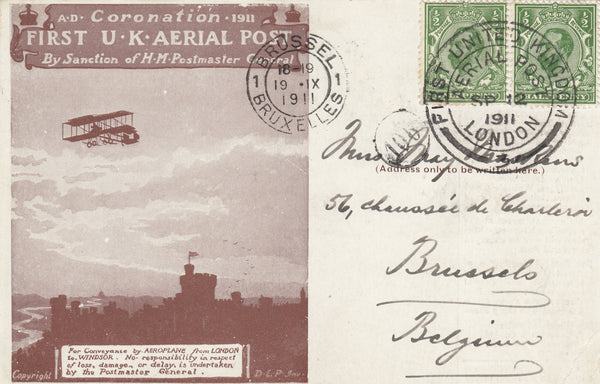 A·D· Coronation · 1911
FIRST U·K·AERIAL POST
By Sanction of H·M·Postmaster General
BRUSSEL
1 18-19 1
19 · IX
1911
BRUXELLES
FIRST UNITED KINGDOM
AERIAL POST
SP 12
1911
LONDON
100
Miss May
(Address only to be written here.)
56, chaussée de Charleroi
Brussels
Belgium
For Conveyance by AEROPLANE from LONDON
to WINDSOR. No responsibility in respect
of loss, damage, or delay, is undertaken
by the Postmaster General.
Copyright
D·L·P·Inv·